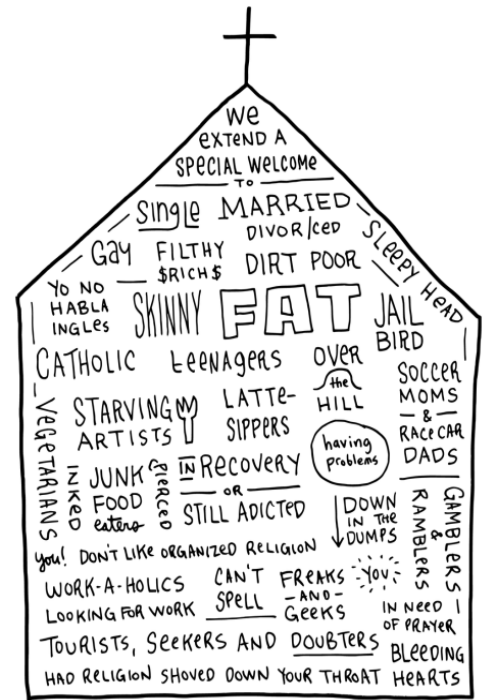 We
EXTEND A
SPECIAL WELCOME
TO
single MARRIED
DIVOR/CED
SLEEPY HEAD
Gay FILTHY
$RICH$
DIRT POOR
YO NO
HABLA
INGLES
SKINNY FAT JAIL
BIRD
CATHOLIC teeNAgeRS OVER
the
HILL
SOCCER
MOMS
&
RACE CAR
DADS
VEGETARIANS
STARVING
ARTISTS
LATTE-
SIPPERS
having
problems
INKED
JUNK
FOOD
eaters
PIERCED
IN RECOVERY
OR
STILL ADICTED
DOWN
IN THE
DUMPS
GAMBLERS
&
RAMBLERS
you! DON'T LIKE ORGANIZED RELIGION
WORK-A-HOLICS
LOOKING FOR WORK
CAN'T
SPELL
FREAKS
-AND-
GEEKS
YOU
IN NEED
OF PRAYER
TOURISTS, SEEKERS AND DOUBTERS
BLEEDING
HEARTS
HAD RELIGION SHOVED DOWN YOUR THROAT